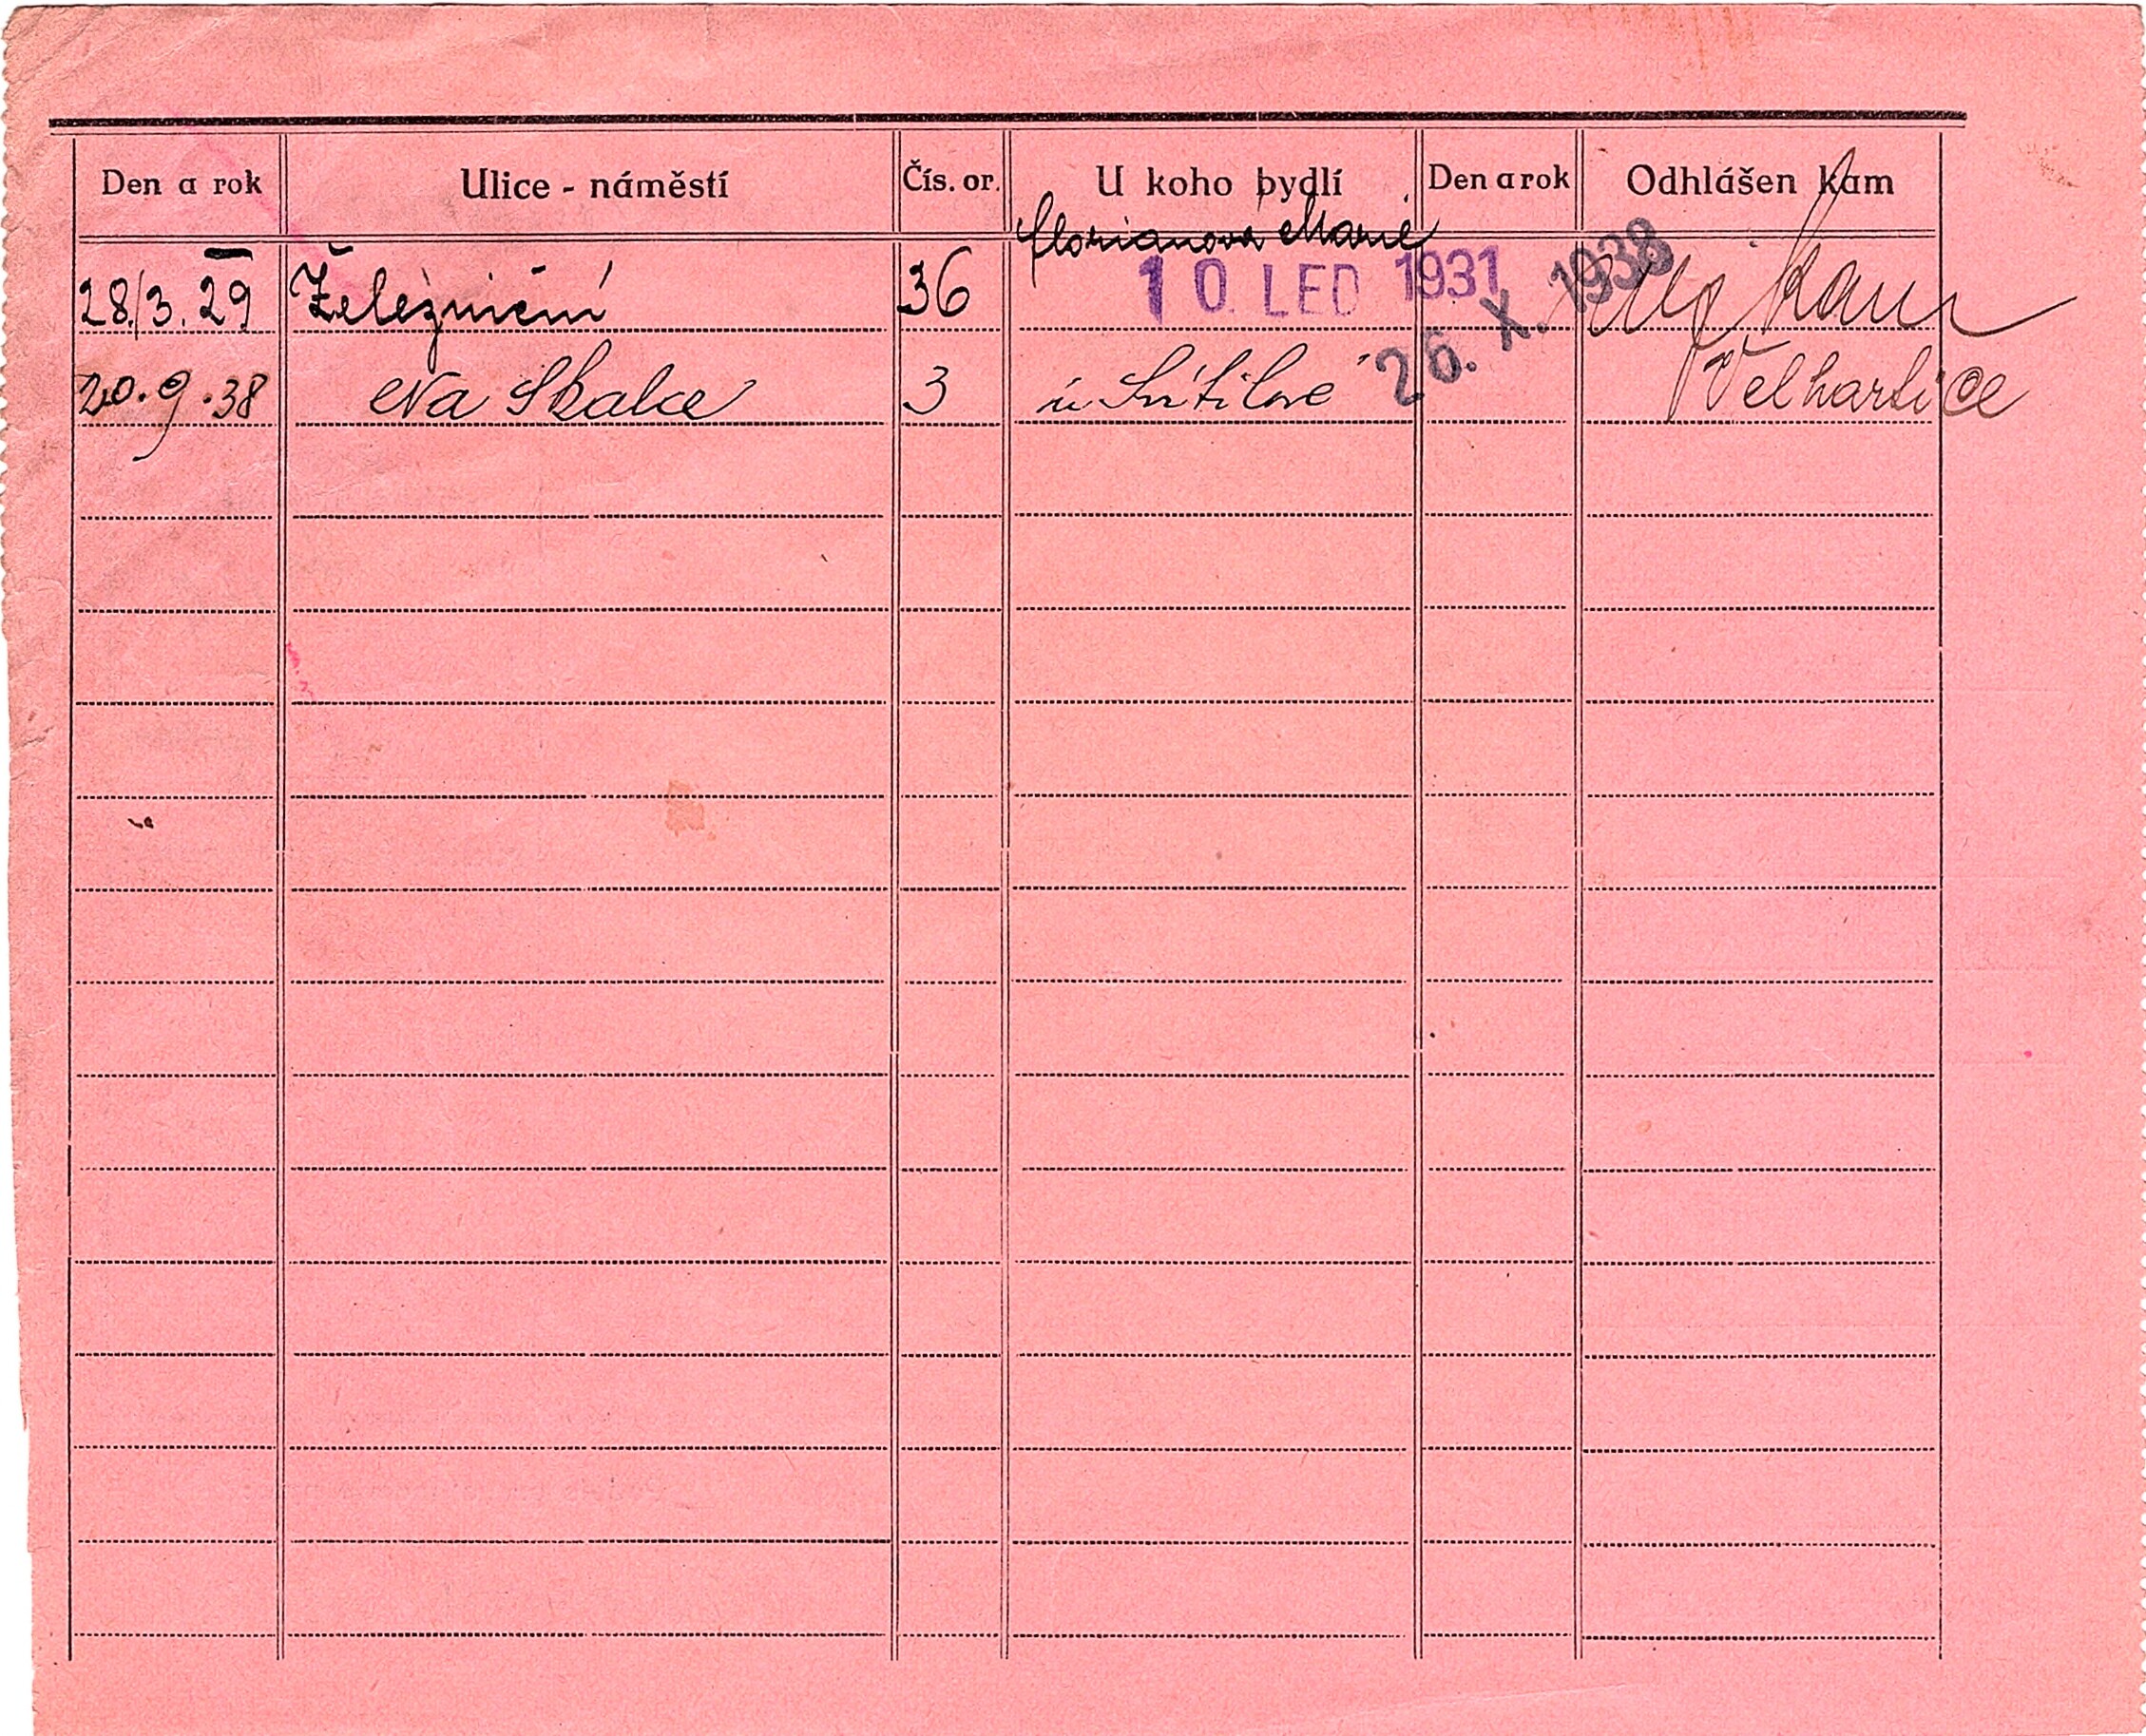 Den a rok Ulice - náměstí Čís. or. U koho bydlí Den a rok Odhlášen kam
Florianova Marie
28./3. 29 Železniční 36 10. LED 1931 26. X. 1938
20. 9. 38 na Skalce 3 Velhartice